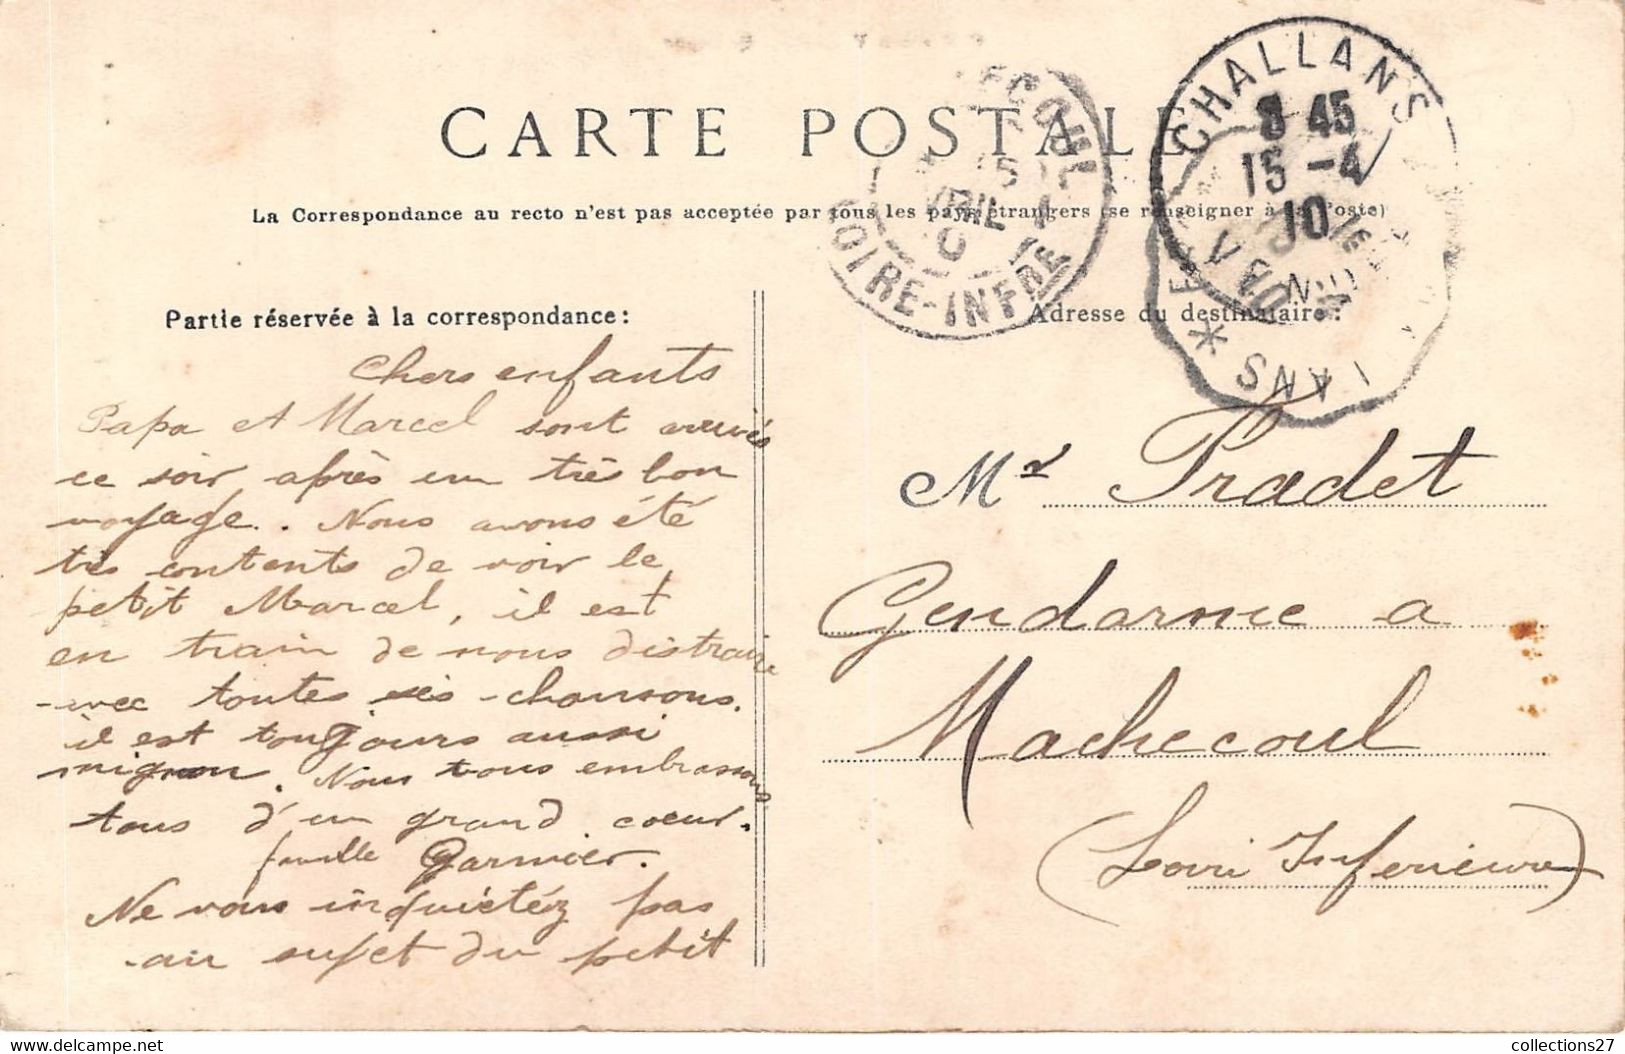 CARTE POSTALE
La Correspondance au recto n'est pas acceptée par tous les pays étrangers (se renseigner à la Poste)
CHALLANS
8 45
15 -4
10
VENDÉE
LOIRE-INFRE
Partie réservée à la correspondance:
Chers enfants
Papa et Marcel sont arrivés
ce soir après un très bon
voyage. Nous avons été
très contents de voir le
petit Marcel, il est
en train de nous distraire
avec toutes ses chansons.
il est toujours aussi
mignon. Nous vous embrassons
tous d'un grand coeur.
famille Garnier.
Ne vous inquiétéz pas
au sujet du petit
Adresse du destinataire:
Mr Pradet
Gendarme a
Machecoul
(Loire Inferieure)
collections27